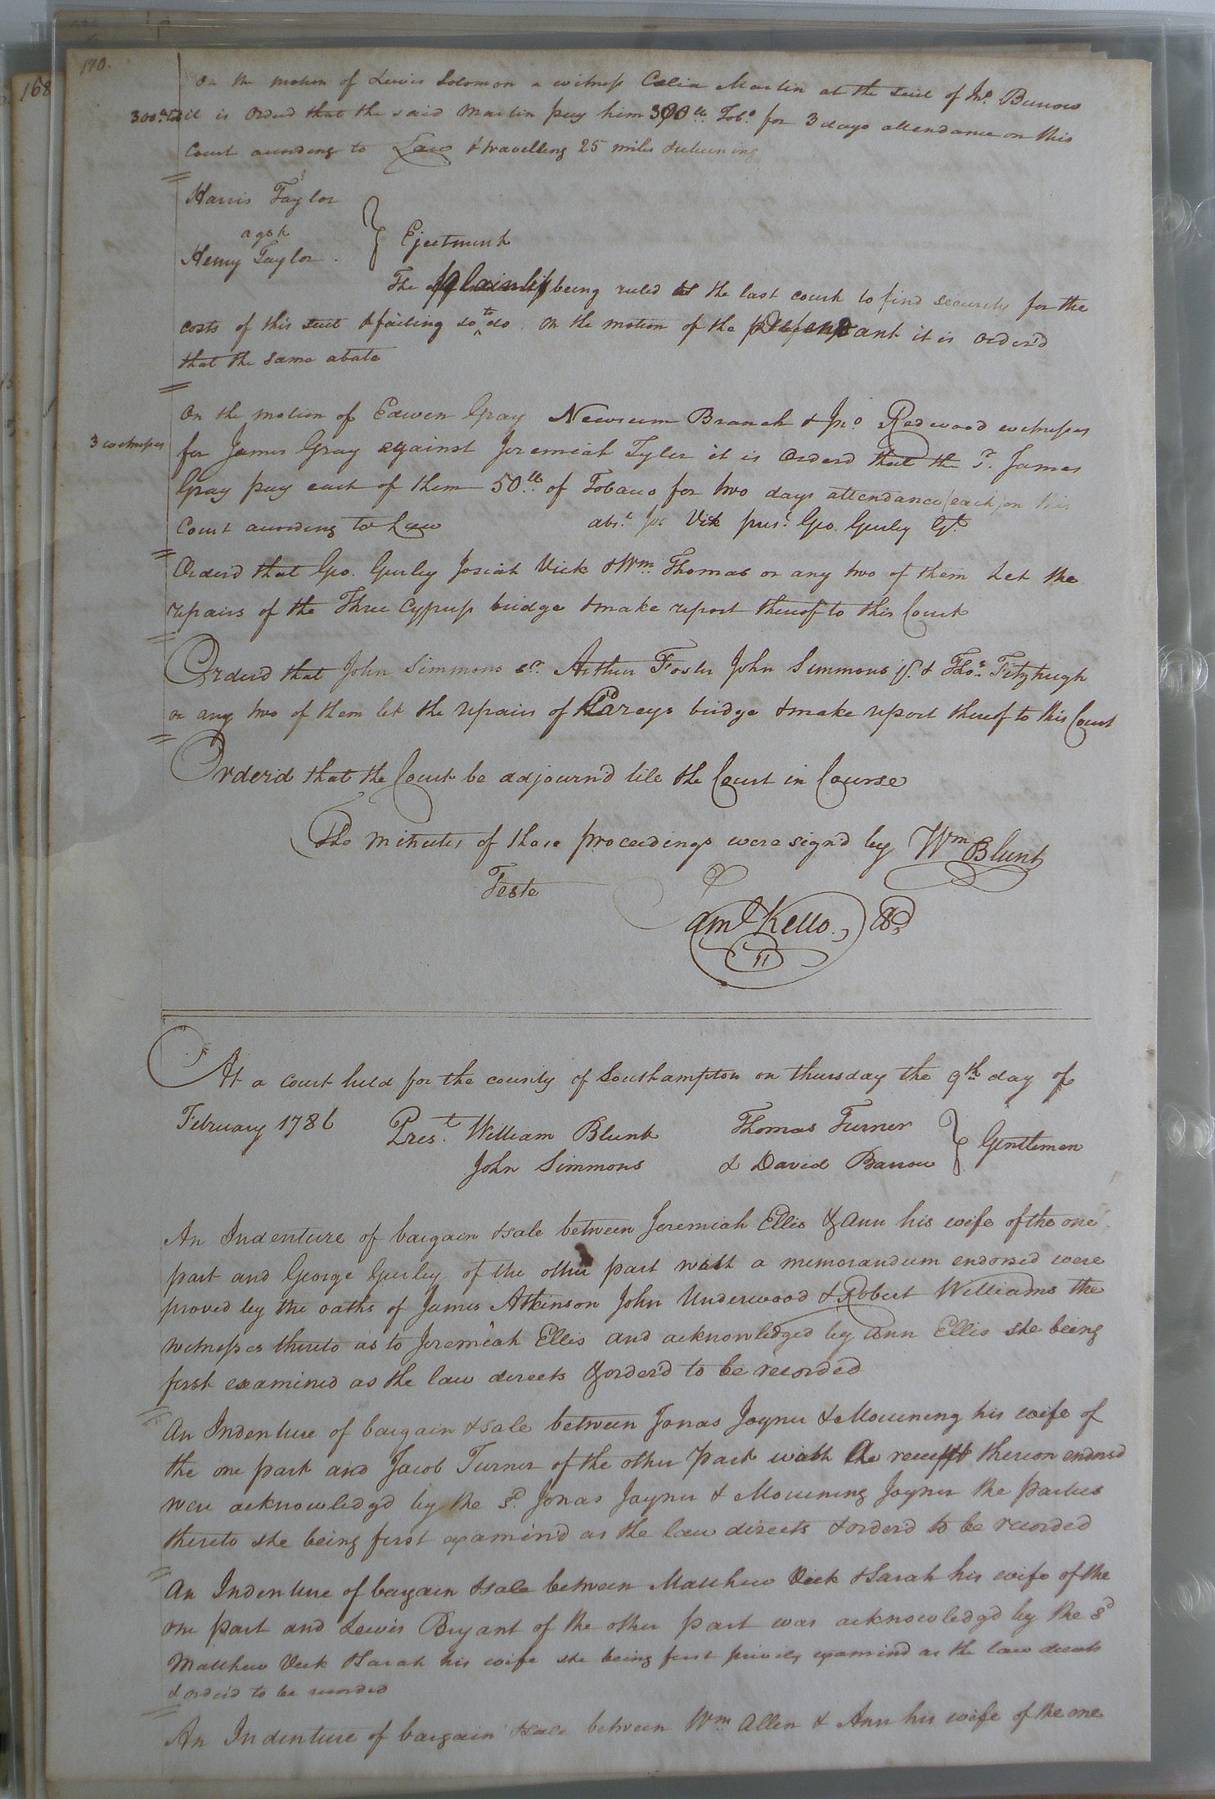 170.
168
On the motion of Lewis Solomon a witness Celia Martin at the suit of Jno. Burrow
300lb Tob it is Orderd that the said Martin pay him 300 lb. Tobo. for 3 days attendance on this
Court according to Law & travelling 25 miles & returning
Harris Taylor
agst
Henry Taylor } Ejectment
The plaintif being ruled at the last court to find security for the
costs of this suit & failing so to do. On the motion of the Defendant it is Orderd
that the same abate
On the motion of Edwin Gray Newsum Branch & Jno. Redwood witnesses
3 witnesses
for James Gray against Jeremiah Tyler it is Orderd that the sd. James
Gray pay each of them 50 lb. of Tobacco for two days attendance (each) on this
Court according to Law abst. Jos Vick prest. Geo. Gurley Gt.
Orderd that Geo. Gurley Josiah Vick & Wm. Thomas or any two of them Let the
repairs of the Three Cypress bridge & make report thereof to this Court
Orderd that John Simmons sr. Arthur Foster John Simmons jr. & Thos. Fitzhugh
or any two of them let the repairs of Careys bridge & make report thereof to this Court
Orderid that the Court be adjourn'd till the Court in Course
The minutes of these proceedings were sign'd by Wm Blunt
Teste
Saml Kello., CC
At a court held for the county of Southampton on thursday the 9th day of
February 1786 Prest. William Blunt Thomas Turner
John Simmons & David Barrow } Gentlemen
An Indenture of bargain & sale between Jeremiah Ellis & Ann his wife of the one
part and George Gurley of the other part with a memorandum endorsed were
proved by the oaths of James Atkinson John Underwood & Robert Williams the
witnesses thereto as to Jeremiah Ellis and acknowledged by Ann Ellis she being
first examined as the law directs & order'd to be recorded
An Indenture of bargain & sale between Jonas Joyner & Mourning his wife of
the one part and Jacob Turner of the other part with the receipt thereon endorsd
were acknowledgd by the sd. Jonas Joyner & Mourning Joyner the parties
thereto she being first examin'd as the law directs & orderd to be recorded
An Indenture of bargain & sale between Matthew Vick & Sarah his wife of the
one part and Lewis Bryant of the other part was acknowledgd by the sd
Matthew Vick & Sarah his wife she being first privily examind as the law directs
& order'd to be recorded
An Indenture of bargain & sale between Wm Allen & Ann his wife of the one